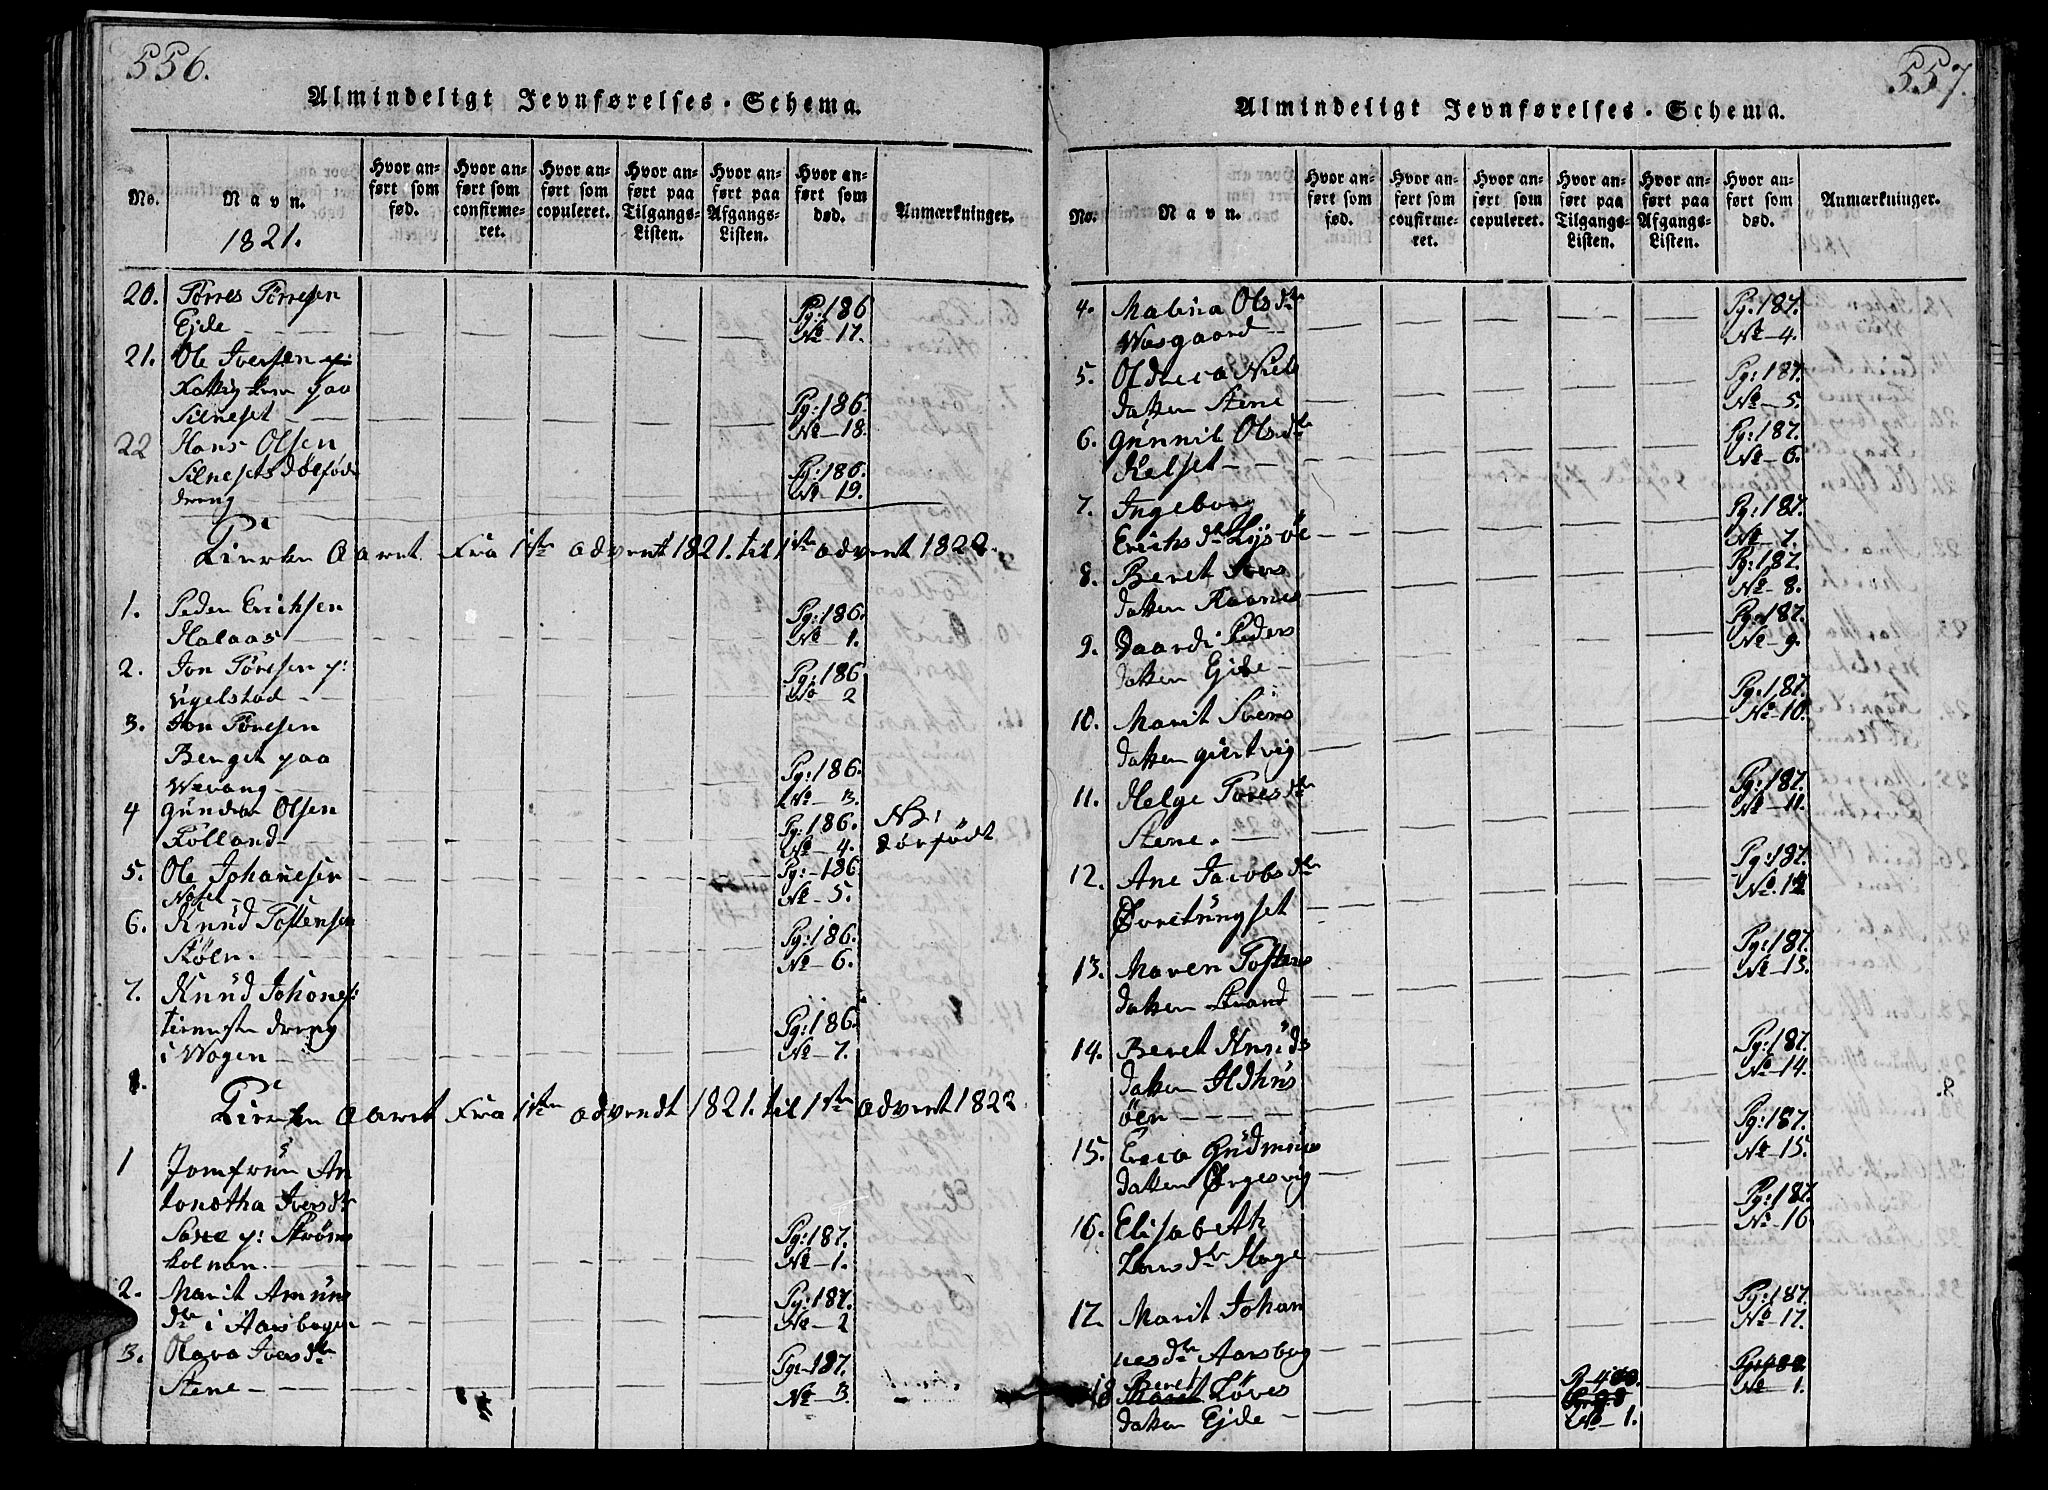 556.
Almindeligt Jevnførelses-Schema.
No.
Navn.
1821.
Hvor anført som fød.
Hvor anført som confirmeret.
Hvor anført som copuleret.
Hvor anført paa Tilgangs-Listen.
Hvor anført paa Afgangs-Listen.
Hvor anført som død.
Anmærkninger.
20. Torres Törresen
Ejde Pg: 186 No 17.
21. Ole Iversen
paa
Silneset Pg: 186. No 18.
22 Hans Olsen
Silnesets dölföd
dreng Pg: 186. No 19.
Kircke Aaret fra 1ste advent 1821. til 1ste advent 1822.
1. Peder Erichsen
Halaas Pg: 186. No 1.
2. Jon Törresen p:
Vigelstad Pg: 186 No 2
3. Jon Tönesen
Berget paa
Wevang Pg: 186. No 3.
4 Gunder Olsen
Rolland Pg: 186. No 4. NB: dörfödt
5. Ole Johanesen
Pg: 186 No 5.
6. Knud Tostensen
Stöln. Pg: 186. No 6.
7. Knud Johanes:
tienneste dreng
i Wogen Pg: 186. No 7.
8.
Kircke Aaret fra 1ste advendt 1821. til 1ste advent 1822
1 Jomfrue An
tonetha Iversdtr
p: Ströms
holmen. Pg: 187. No 1.
2. Marit Amuns
dtr i Aarsbogen Pg: 187. No 2
3. Olava Iversdtr
Stene Pg: 187. No 3.
557.
Almindeligt Jevnførelses-Schema.
No.
Navn.
Hvor anført som fød.
Hvor anført som confirmeret.
Hvor anført som copuleret.
Hvor anført paa Tilgangs-Listen.
Hvor anført paa Afgangs-Listen.
Hvor anført som død.
Anmærkninger.
4. Malena Olsdtr
Wosgaard Pg. 187. No 4.
5. Niels
datter Stene Pg: 187. No 5.
6. Gunnil Olsdtr
Kelset Pg: 187. No 6.
7. Ingebor
Erichsdtr Lysöe Pg: 187. No 7.
8. Beret Ivers
datter Raanes Pg: 187. No 8.
9. Daardi Peders
datter Ejde Pg: 187. No 9.
10. Marit Svens
datter giertvig Pg: 187. No 10.
11. Helge Toresdtr
Stene. Pg: 187. No 11.
12. Ane Jacobsdtr
Øvretungset Pg: 187. No. 12
13. Maren Tostens
datter Strand Pg: 187. No 13.
14. Beret Knuds
datter Ildhus
öen Pg: 187. No 14.
15. Erica Gudmuns
datter Ørgesvig Pg: 187. No 15.
16. Elisabeth
Larsdtr Hoge Pg: 187. No 16
17. Marit Johan
nesdtr Aarsbog Pg: 187. No 17.
18 Beret Löves
datter Ejde No 1. No 1.